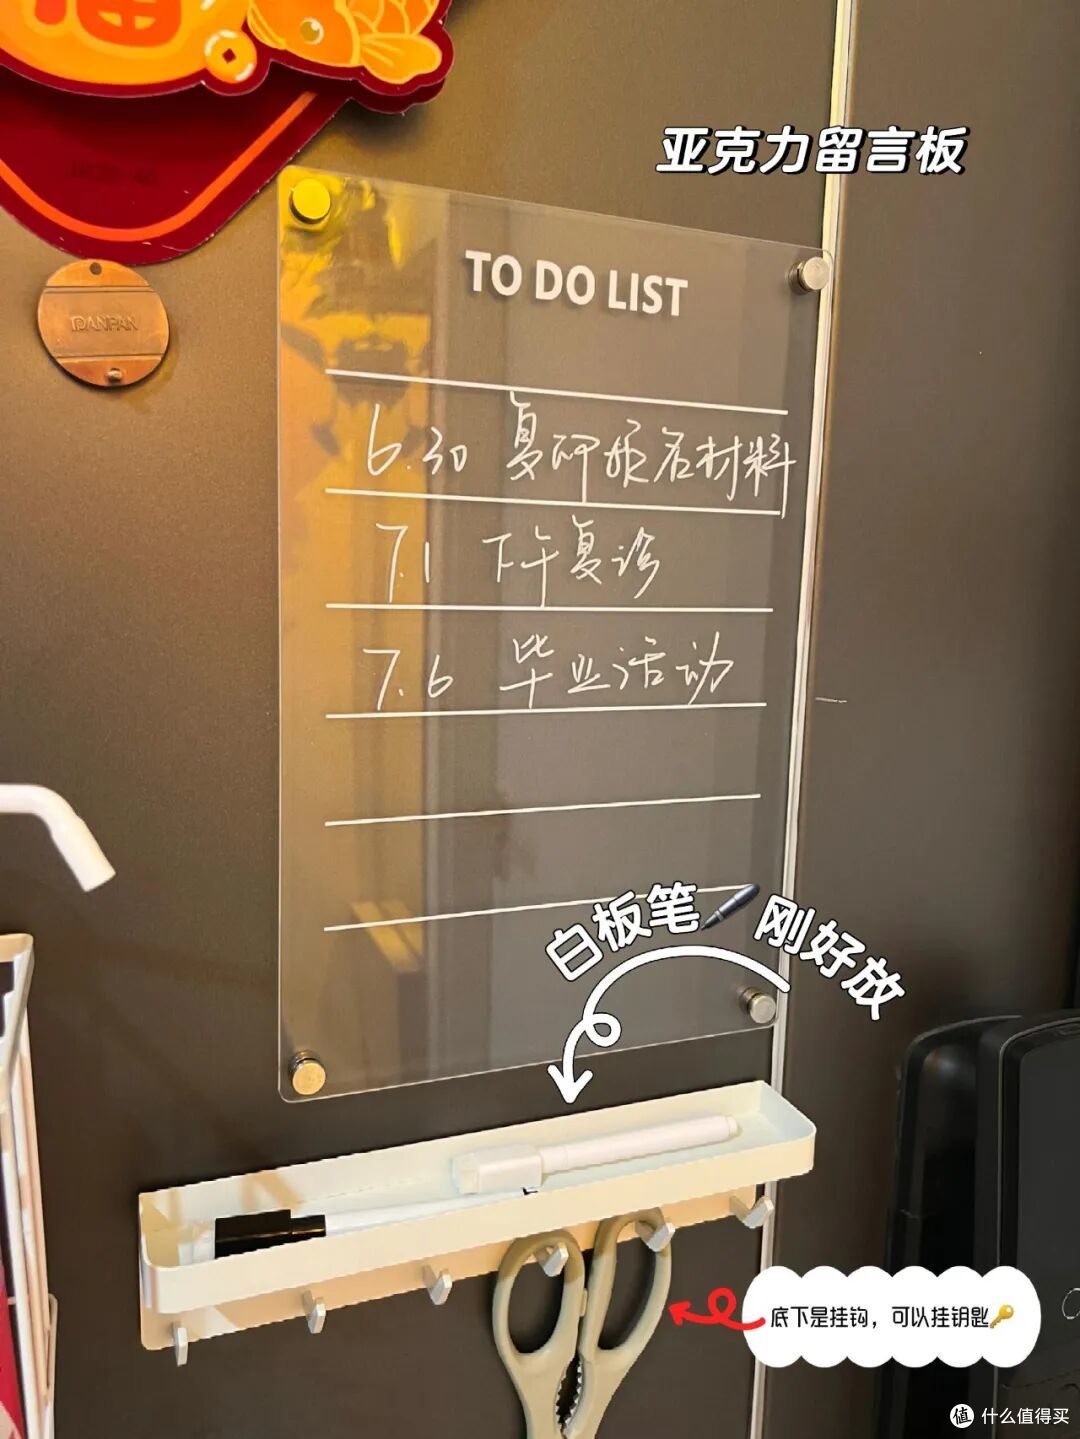 亚克力留言板
DANFAN
TO DO LIST
6.30 复研报名材料
7.1 下午复诊
7.6 毕业活动
白板笔 刚好放
底下是挂钩，可以挂钥匙
值 什么值得买